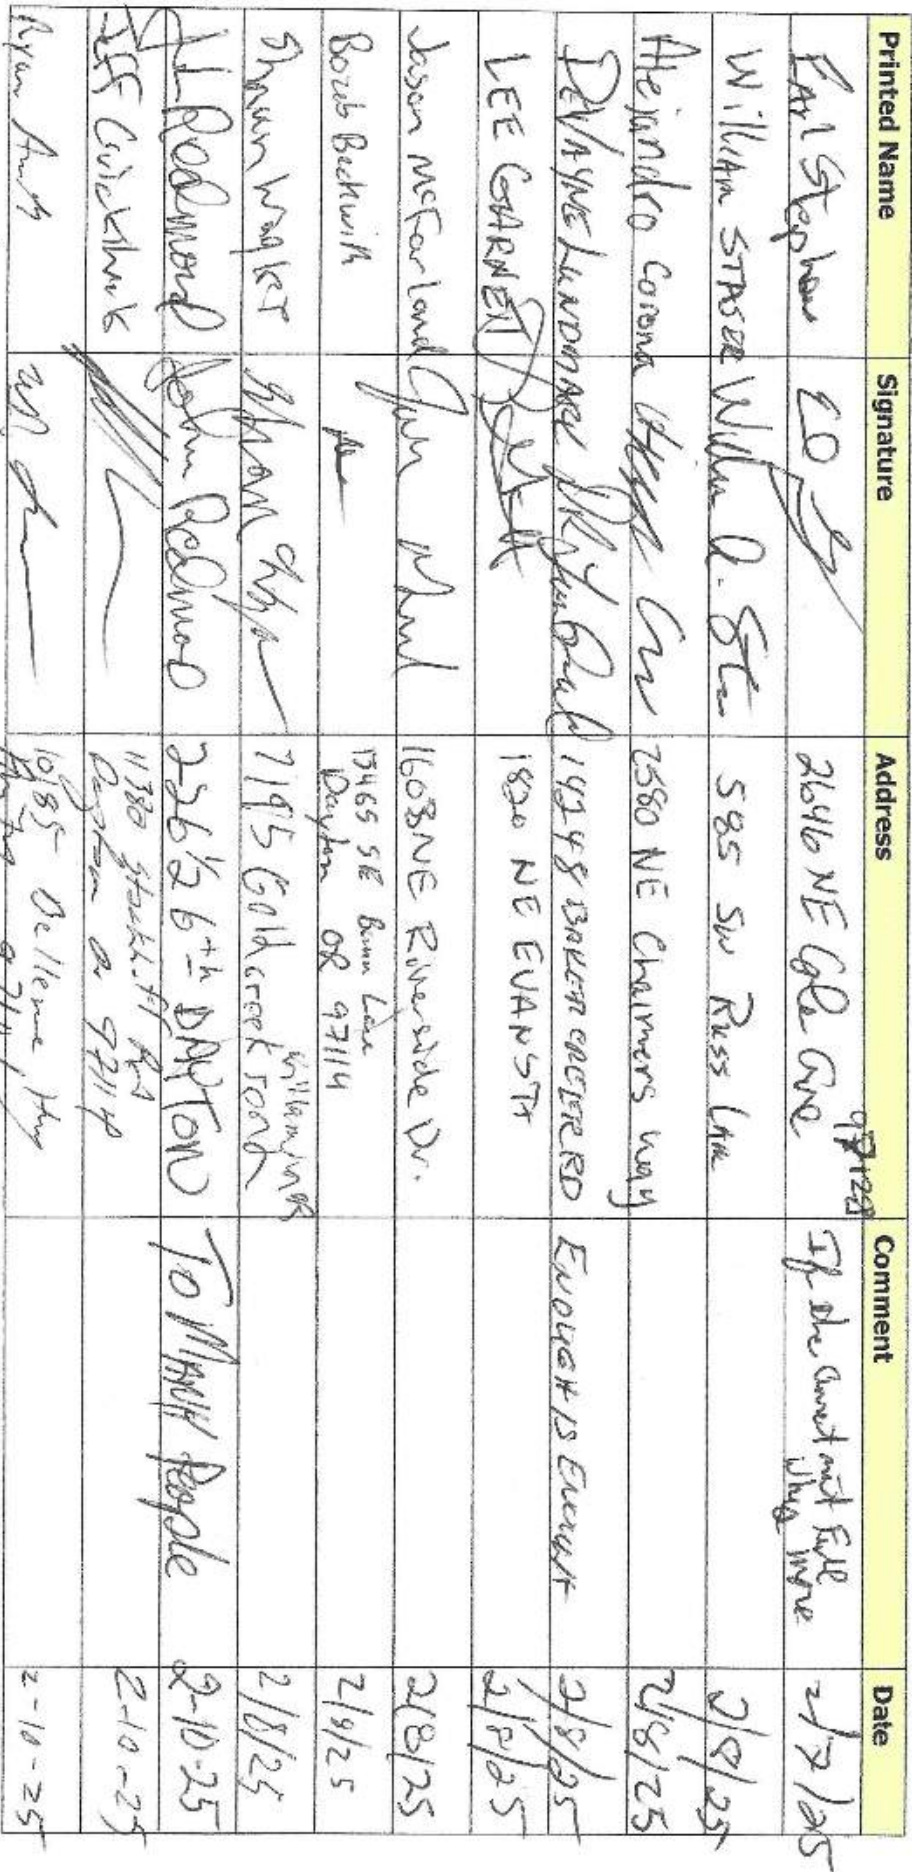 Printed Name Signature Address Comment Date
Earl Stephens 2646 NE Cole Ave 97128 If the current not Full why more 2/7/25
William STASER 585 SW Russ Lane 2/8/25
Alejandro Corona 2580 NE Chaimers way 2/8/25
DEVAYNE LUNDMARK 14248 BAKER CREEK RD ENOUGH IS ENOUGH 2/8/25
LEE GARNETT 1820 NE EVANS ST 2/8/25
Jason McFarland 1603 NE Riverside Dr. 2/8/25
Beckwith SE Lane Dayton OR 97114 2/9/25
Shawn 7195 Gold creek road Willamina OR 2/8/25
Redmond John Redmond 226 1/2 6th DAYTON TO MANY People 2-10-25
Jeff Cruickshank 11380 Dayton Or 97114 2-10-25
Ryan 10185 Bellevue Hwy 2-10-25